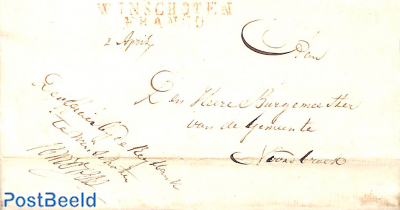 WINSCHOTEN
FRANCO
2 April
Den
Den Heere Burgemeester
van de Gemeente
Noordbroek
te Winschoten
PostBeeld